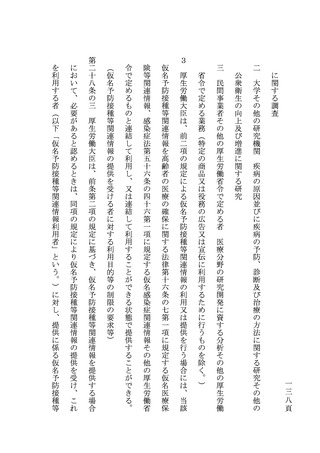 一三八頁
に関する調査
二　大学その他の研究機関　疾病の原因並びに疾病の予防、診断及び治療の方法に関する研究その他の
公衆衛生の向上及び増進に関する研究
三　民間事業者その他の厚生労働省令で定める者　医療分野の研究開発に資する分析その他の厚生労働
省令で定める業務（特定の商品又は役務の広告又は宣伝に利用するために行うものを除く。）
３　厚生労働大臣は、前二項の規定による仮名予防接種等関連情報の利用又は提供を行う場合には、当該
仮名予防接種等関連情報を高齢者の医療の確保に関する法律第十六条の七第一項に規定する仮名医療保
険等関連情報、感染症法第五十六条の四十六第一項に規定する仮名感染症関連情報その他の厚生労働省
令で定めるものと連結して利用し、又は連結して利用することができる状態で提供することができる。
（仮名予防接種等関連情報の提供を受ける者に対する利用目的等の制限の要求等）
第二十八条の三　厚生労働大臣は、前条第二項の規定に基づき、仮名予防接種等関連情報を提供する場合
において、必要があると認めるときは、同項の規定により仮名予防接種等関連情報の提供を受け、これ
を利用する者（以下「仮名予防接種等関連情報利用者」という。）に対し、提供に係る仮名予防接種等